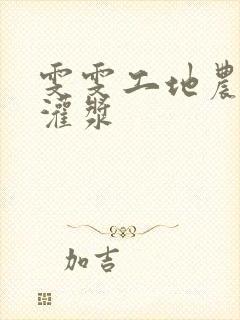 雯雯工地農
灌漿
加吉